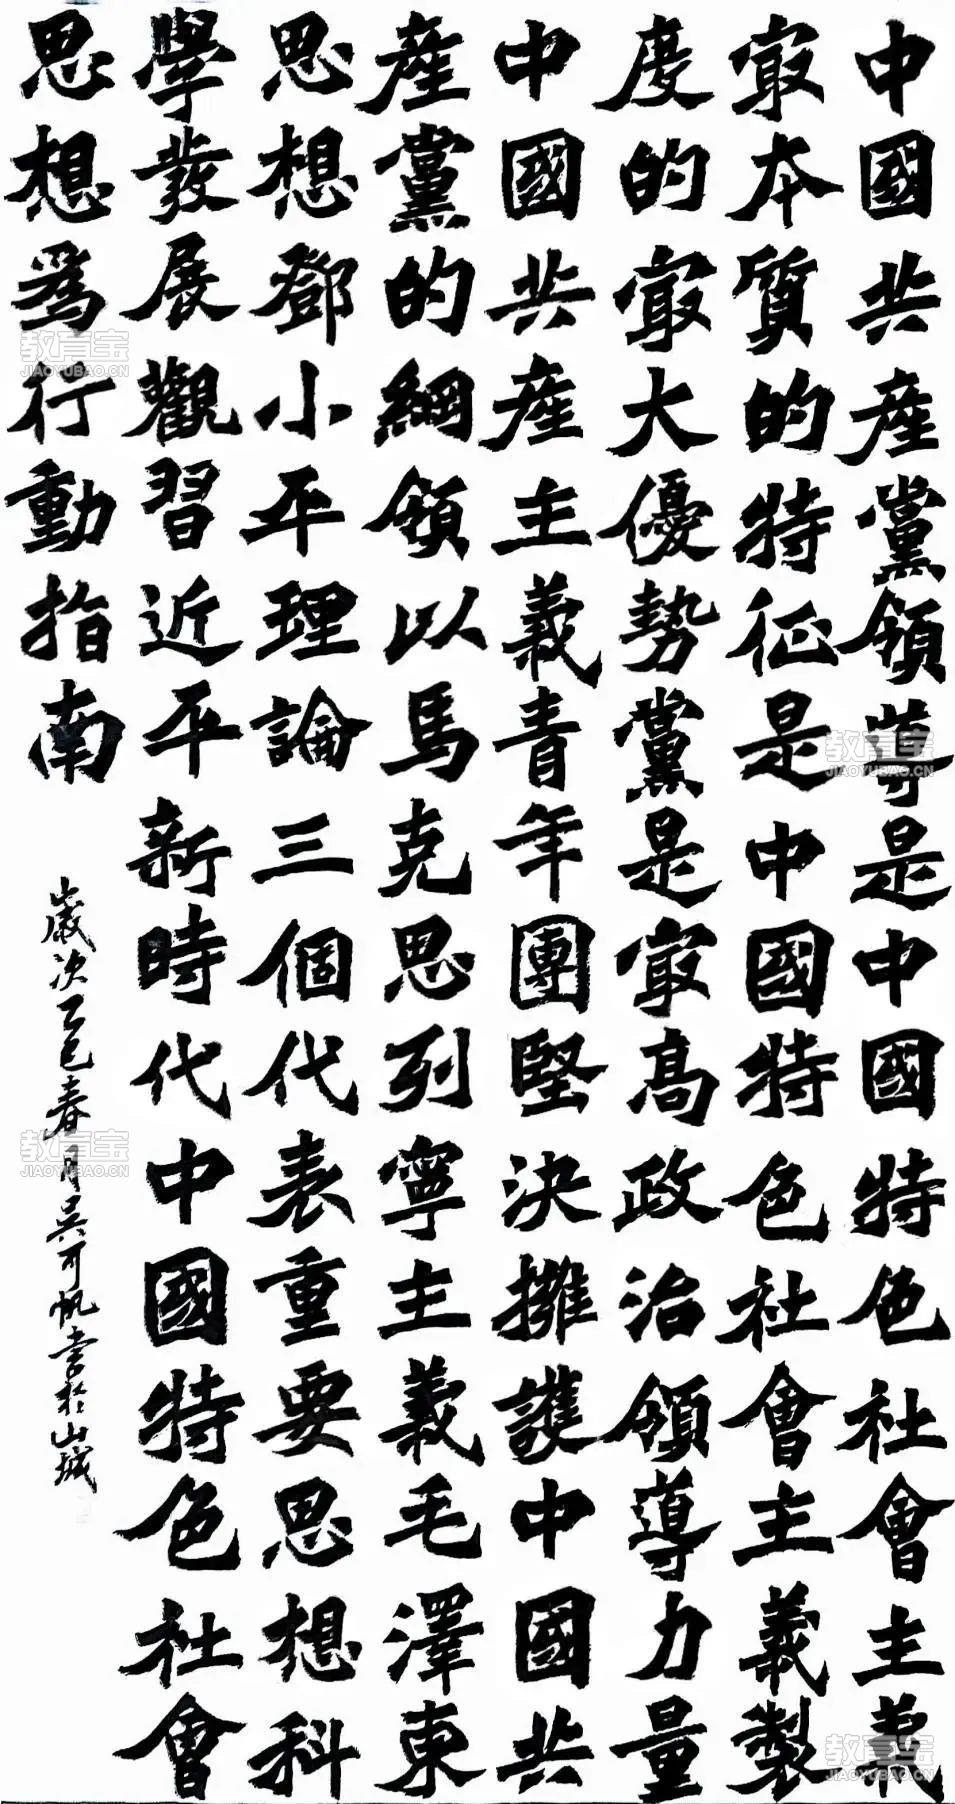 中國共產黨領導是中國特色社會主義
最本質的特征是中國特色社會主義製
度的最大優勢黨是最高政治領導力量
中國共產主義青年團堅決擁護中國共
產黨的綱領以馬克思列寧主義毛澤東
思想鄧小平理論三個代表重要思想科
學發展觀習近平新時代中國特色社會
思想為行動指南
歲次乙巳春月吳可帆書於山城
教育宝
JIAOYUBAO.CN
教育宝
JIAOYUBAO.CN
教育宝
JIAOYUBAO.CN
教育宝
JIAOYUBAO.CN